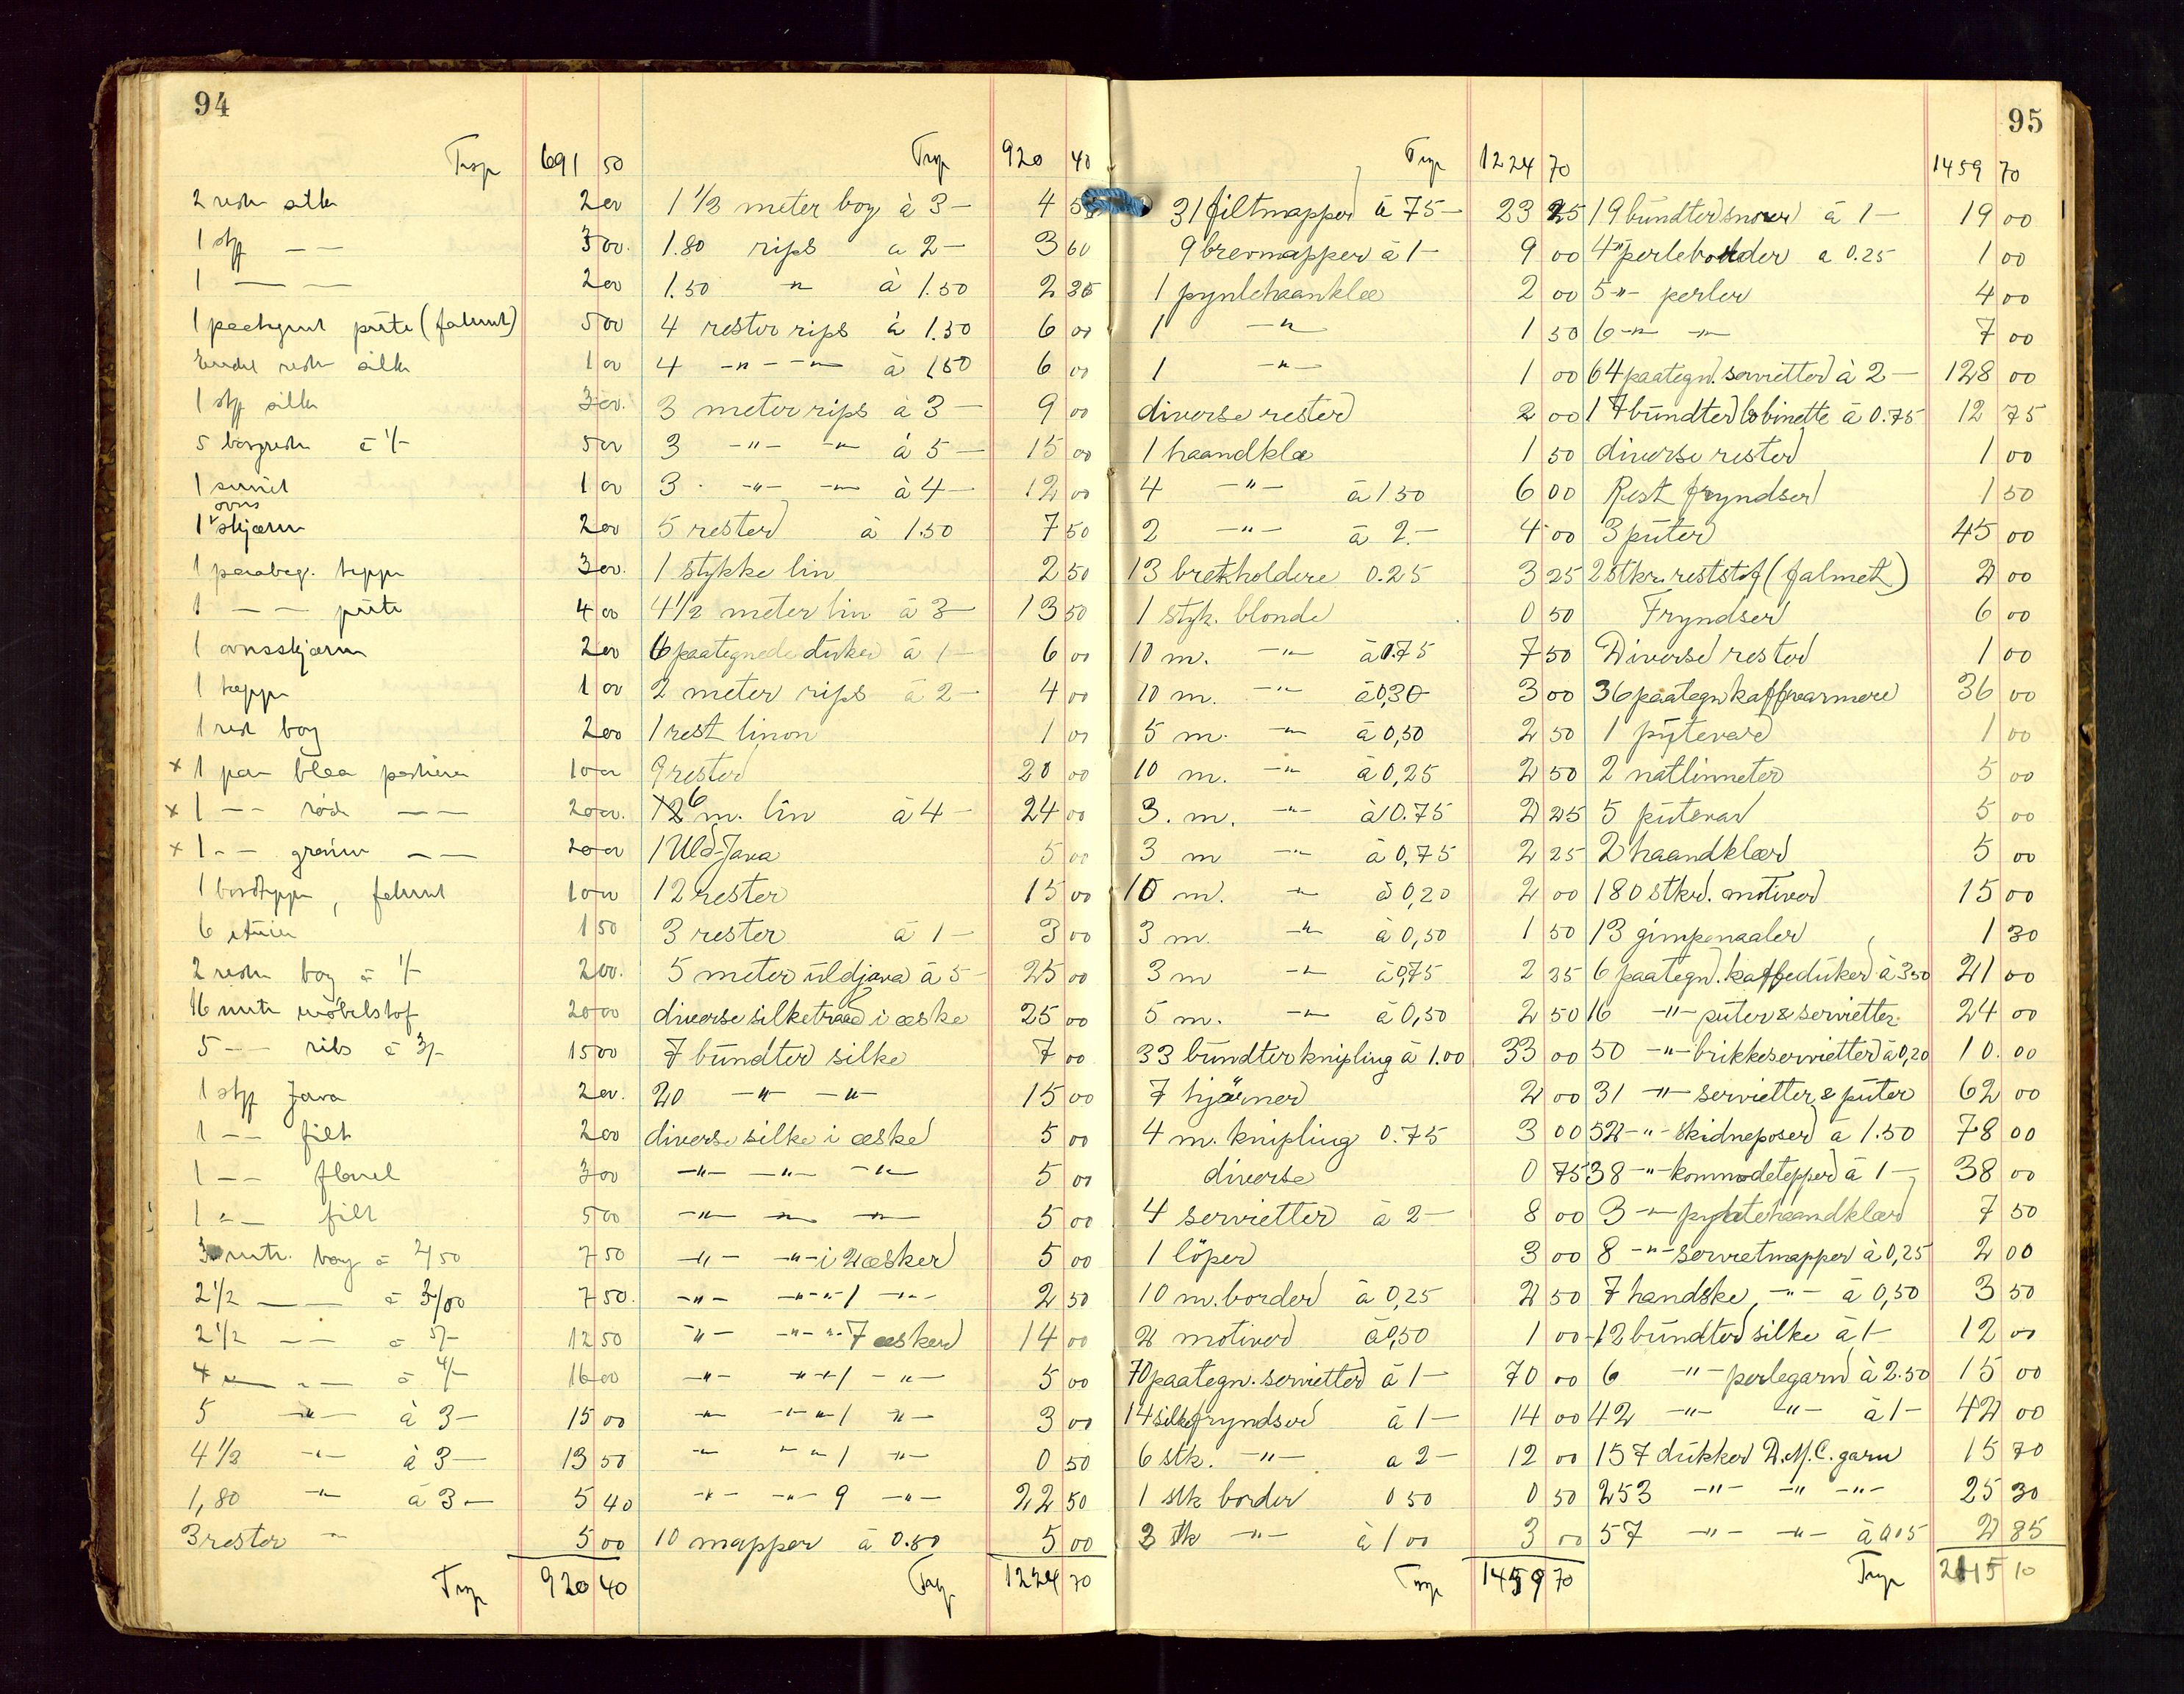 94
Trsp 691 50
2 rester silke 2 00
1 stp — — 3 00.
1 — — 2 00
1 paategnet pute (falmet) 5 00
rester silke 1 00
1 stp silke 3 00.
5 boyrester à 1/- 5 00
1 serviet 1 00
1 ovns skjærm 2 00
1 paabeg. teppe 3 00.
1 — — pute 4 00
1 ovnsskjærm 2 00
1 teppe 1 00
1 rest boy 2 00
x 1 par blaa portierer 10 00
x 1 — — röde — — 20 00.
x 1 - - grönne — — 20 00
1 bordteppe, falmet 10 00
6 etuier 1 50
2 rester boy à 1/- 2 00.
16 mtr möbelstof 20 00
5 — — ribs à 3/- 15 00
1 stp Java 2 00.
1 - - filt 2 00
1 - - flanel 3 00
1 - - filt 5 00
3 mtr. boy à 2/50 7 50
2 1/2 — — à 3/00 7 50.
2 1/2 — — à 5/- 12 50
4 — — à 4/- 16 00
5 -"- à 3- 15 00
4 1/2 -"- à 3- 13 50
1,80 -"- à 3- 5 40
3 rester -"- 5 00
Trsp 920 40
Trsp 920 40
1 1/2 meter boy à 3- 4 50
1.80 rips a 2- 3 60
1.50 -"- à 1.50 2 25
4 rester rips à 1.50 6 00
4 -"- -"- à 1 50 6 00
3 meter rips à 3- 9 00
3 -"- -"- à 5- 15 00
3 -"- -"- à 4- 12 00
5 rester à 1.50 7 50
1 stykke lin 2 50
4 1/2 meter lin à 3- 13 50
6 paategnede duker à 1- 6 00
2 meter rips à 2- 4 00
1 rest linon 1 00
9 rester 20 00
6 m. lin à 4- 24 00
1 Uld-Java 5 00
12 rester 15 00
3 rester à 1- 3 00
5 meter uldjava à 5- 25 00
diverse silketraad i æske 25 00
7 bundter silke 7 00
20 -"- -"- 15 00
diverse silke i æske 5 00
-"- -"- -"- 5 00
-"- -"- -"- 5 00
-"- -"- i 2 æsker 5 00
-"- -"- 1 -"- 2 50
-"- -"- 7 æsker 14 00
-"- -"- 1 -"- 5 00
-"- -"- 1 -"- 3 00
-"- -"- 1 -"- 0 50
-"- -"- 9 -"- 22 50
10 mapper à 0.50 5 00
Trsp 1224 70
Trsp 1224 70
31 filtmapper à 75- 23 25
9 brevmapper à 1- 9 00
1 pyntehaanklæ 2 00
1 -"- 1 50
1 -"- 1 00
diverse rester 2 00
1 haandklæ 1 50
4 -"- à 1 50 6 00
2 -"- à 2.- 4 00
13 brekholdere 0.25 3 25
1 styk. blonde 0 50
10 m. -"- à 0.75 7 50
10 m. -"- à 0,30 3 00
5 m. -"- à 0,50 2 50
10 m. -"- à 0,25 2 50
3. m. -"- à 0.75 2 25
3 m -"- à 0,75 2 25
10 m. -"- à 0,20 2 00
3 m. -"- à 0,50 1 50
3 m -"- à 0,75 2 25
5 m. -"- à 0,50 2 50
33 bundter knipling à 1.00 33 00
7 hjørner 2 00
4 m. knipling 0.75 3 00
diverse 0 75
4 servietter à 2- 8 00
1 löper 3 00
10 m. border à 0,25 2 50
2 motiver à 0,50 1 00
70 paategn. servietter à 1- 70 00
14 silkefryndser à 1- 14 00
6 stk. -"- a 2- 12 00
1 stk border 0 50 0 50
3 stk -"- à 1 00 3 00
Trsp 1459 70
95
1459 70
19 bundter snorer à 1- 19 00
4 -"- perleborder a 0.25 1 00
5 -"- perler 4 00
6 -"- -"- 7 00
64 paategn. servietter à 2- 128 00
17 bundter bobinette à 0.75 12 75
diverse rester 1 00
Rest fryndser 1 50
3 puter 45 00
2 stkr. reststof (falmet) 2 00
Fryndser 6 00
Diverse rester 1 00
36 paategn kaffevarmere 36 00
1 putevar 1 00
2 natlinneter 5 00
5 putevar 5 00
2 haandklær 5 00
180 stkr. motiver 15 00
13 gimpenaaler 1 30
6 paategn. kaffeduker à 3 50 21 00
16 -"- puter & servietter 24 00
50 -"- brikkeservietter à 0,20 10.00
31 -"- servietter & puter 62 00
52 -"- skidneposer à 1.50 78 00
38 -"- kommodetepper à 1- 38 00
3 -"- pyntehaandklær 7 50
8 -"- servietmapper à 0,25 2 00
7 handske -"- à 0,50 3 50
12 bundter silke à 1- 12 00
6 -"- perlegarn à 2.50 15 00
42 -"- -"- à 1- 42 00
157 dukker D.M.C. garn 15 70
253 -"- -"- -"- 25 30
57 -"- -"- à 0.05 2 85
Trsp 2115 10